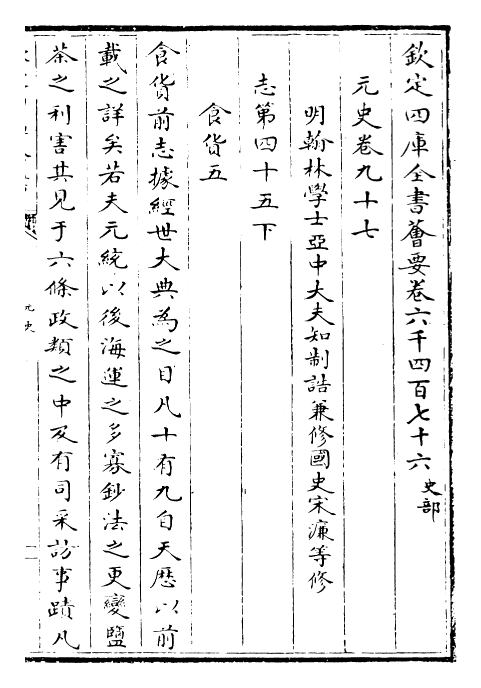 欽定四庫全書薈要卷六千四百七十六史部
元史卷九十七
明翰林學士亞中大夫知制誥兼修國史宋濂等修
志第四十五下
食貨五
食貨前志據經世大典為之目凡十有九自天厯以前
載之詳矣若夫元統以後海運之多寡鈔法之更變鹽
茶之利害其見于六條政類之中及有司采訪事蹟凡
元史